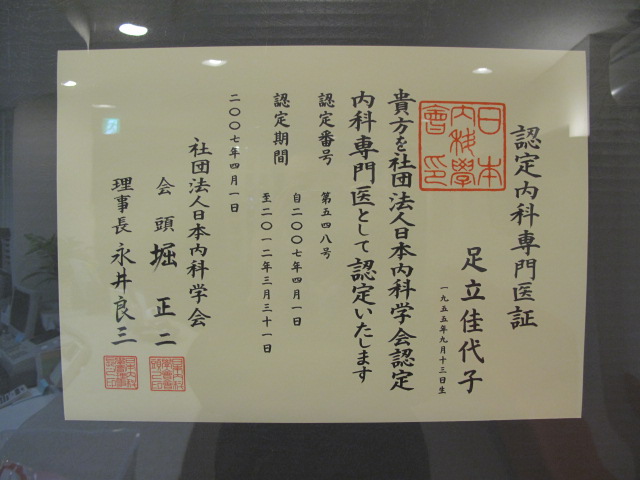 認定内科専門医証
足立佳代子
一九五五年九月十三日生
日本内科学會印
貴方を社団法人日本内科学会認定
内科専門医として認定いたします
認定番号 第五四八号
認定期間 自二〇〇七年四月一日
至二〇一二年三月三十一日
二〇〇七年四月一日
社団法人日本内科学会
会頭 堀正二
理事長 永井良三